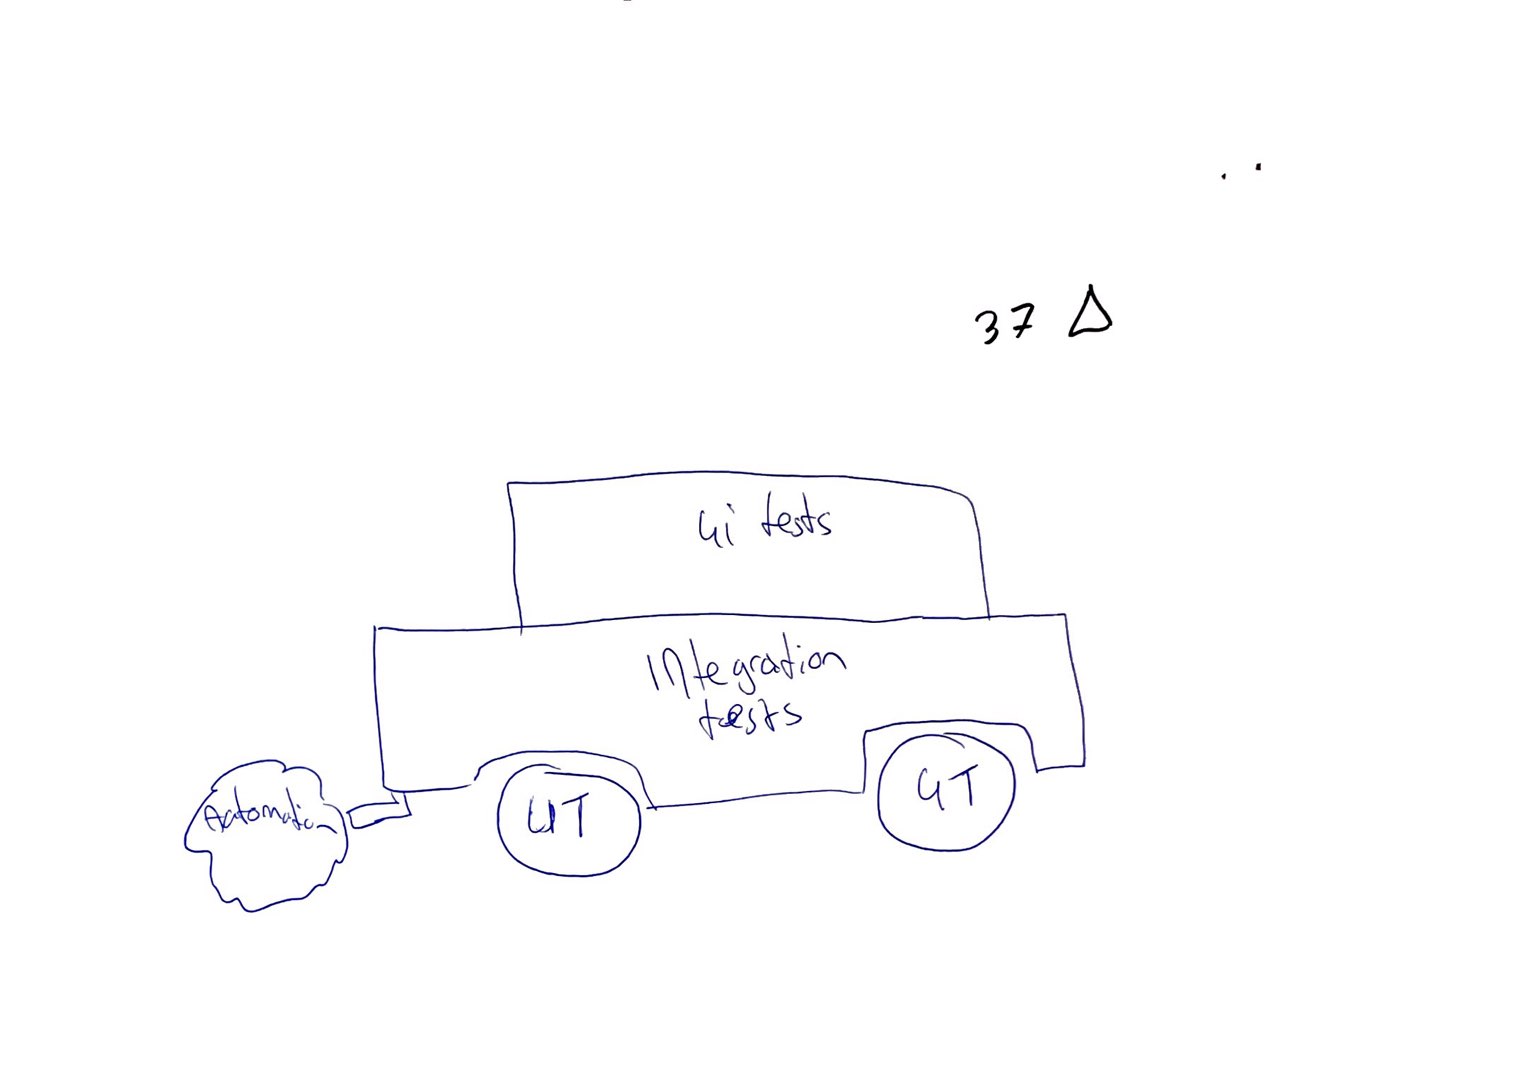 37 Δ
Ui tests
Integration
tests
Automation
UT
UT